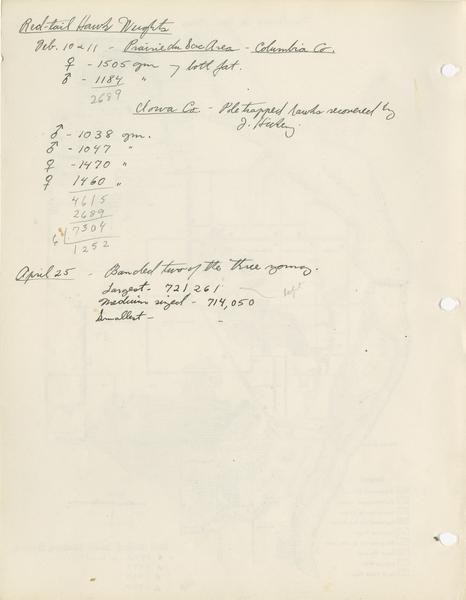 Red-tail Hawk Weights
Feb. 10 & 11 - Prairie du Sac Area - Columbia Co.
♀ - 1505 gm. } both fat.
♂ - 1184 "
2689
Iowa Co - Pole trapped hawks recovered by
J. Hickey
♂ - 1038 gm.
♂ - 1047 "
♀ - 1470 "
♀ 1460 "
4615
2689
6 | 7304
1252
April 25 - Banded two of the three young.
Largest - 721261
Medium sized - 714,050
Smallest - -